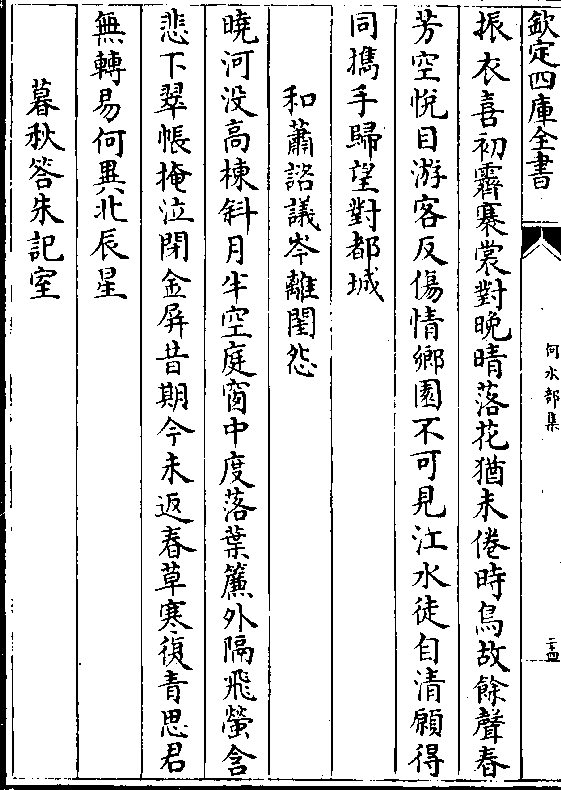 欽定四庫全書
何水部集
二十四
振衣喜初霽褰裳對晚晴落花猶未倦時鳥故餘聲春
芳空悅目游客反傷情鄉園不可見江水徒自清願得
同攜手歸望對都城
和蕭諮議岑離閨怨
曉河没高棟斜月半空庭窗中度落葉簾外隔飛螢含
悲下翠帳掩泣閉金屏昔期今未返春草寒復青思君
無轉易何異北辰星
暮秋答朱記室